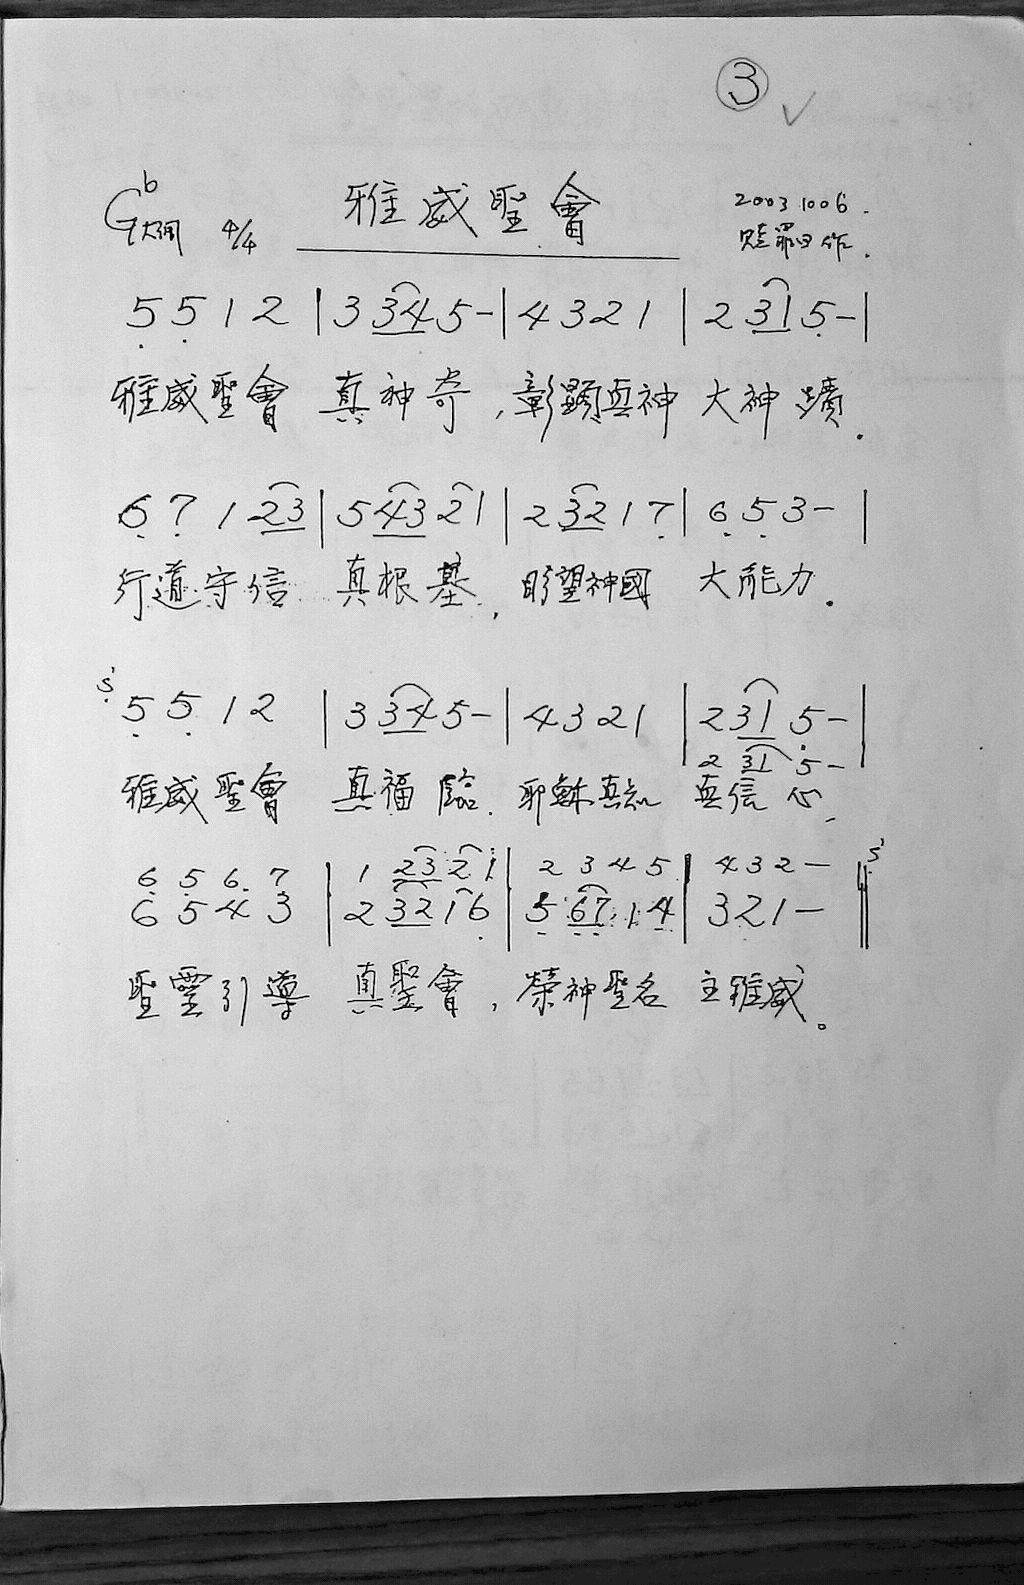 ③ ✓
G♭大調 4/4 雅威聖會 20031006.
罪四作.
5 5 1 2 | 3 34 5 - | 4 3 2 1 | 2 31 5 - |
雅威聖會 真神奇,彰顯真神 大神蹟.
6 7 1 23 | 5 43 21 | 2 32 1 7 | 6 5 3 - |
行道守信 真根基,盼望神國 大能力.
S' 5 5 1 2 | 3 34 5 - | 4 3 2 1 | 2 31 5 - |
2 31 5 -
雅威聖會 真福臨.耶穌真知 真信心,
6 5 6 7 | 1 23 21 | 2 3 4 5 | 4 3 2 - || S'
6 5 4 3 | 2 32 16 | 5 67 1 4 | 3 2 1 - ||
聖靈引導 真聖會,榮神聖名 主雅威。